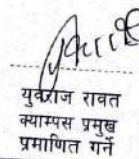 युवराज रावत
क्याम्पस प्रमुख
प्रमाणित गर्ने